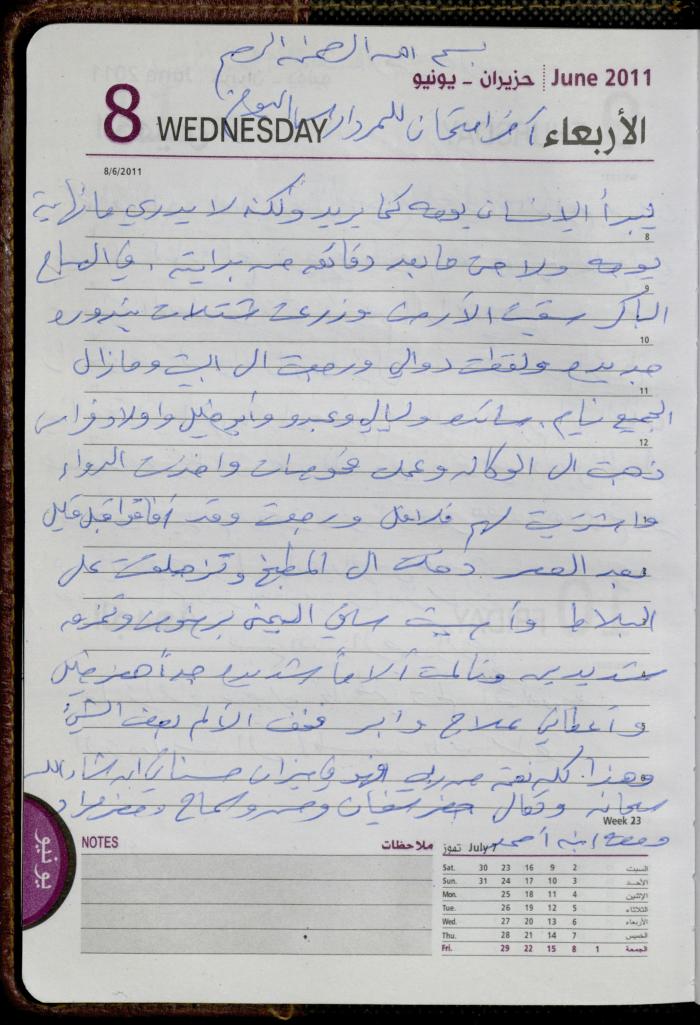 بسم الله الرحمن الرحيم
June 2011 حزيران - يونيو
8 WEDNESDAY الأربعاء
آخر امتحان للمدارس اليوم
8/6/2011
يبدأ الإنسان يومه كما يريد ولكنه لا يدري ما نهاية
8
يومه ولا حتى ما بعد دقائق من بدايته . في الصباح
9
الباكر سقيت الأرض وزرعت شتلات بندوره
10
جديده ولقطت دوالي ورجعت الى البيت ومازال
11
الجميع نيام . ساند وليالي وعبدو وأبو خليل واولاد فراس
12
ذهبت الى الوكاله وعملت فحوصات واخذت الدواء
واشتريت لهم فلافل ورجعت وقد أفاقوا قبل قليل
بعد العصر دخلت الى المطبخ وتزحلقت على
البلاط وأصيبت ساقي اليمنى برضوض وتمزق
شديدين وتألمت آلاماً شديده جداً حضر خليل
وأعطاني علاج وابر فخف الألم بعض الشيء
وهذا كله نعمة من ربي فهو في ميزان حسناتي ان شاء الله
سبحانه وتعالى حضر سفيان وحضر
ومعه ابنه احمد
Week 23
NOTES ملاحظات
July 7 تموز
Sat. 30 23 16 9 2 السبت
Sun. 31 24 17 10 3 الأحد
Mon. 25 18 11 4 الإثنين
Tue. 26 19 12 5 الثلاثاء
Wed. 27 20 13 6 الأربعاء
Thu. 28 21 14 7 الخميس
Fri. 29 22 15 8 1 الجمعة
يونيو